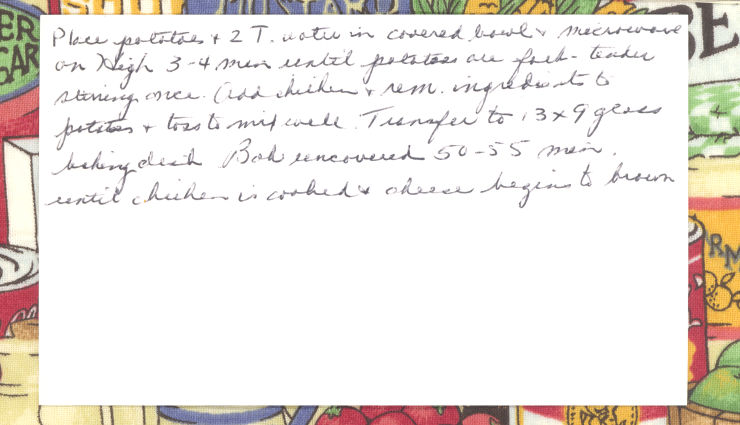 Place potatoes + 2 T. water in covered bowl & microwave
on High 3-4 min until potatoes are fork-tender
stirring once. Add chicken & rem. ingredients to
potatoes + toss to mix well. Transfer to 13x9 glass
baking dish Bake uncovered 50-55 min.
until chicken is cooked & cheese begins to brown
ER
AR
E
RM